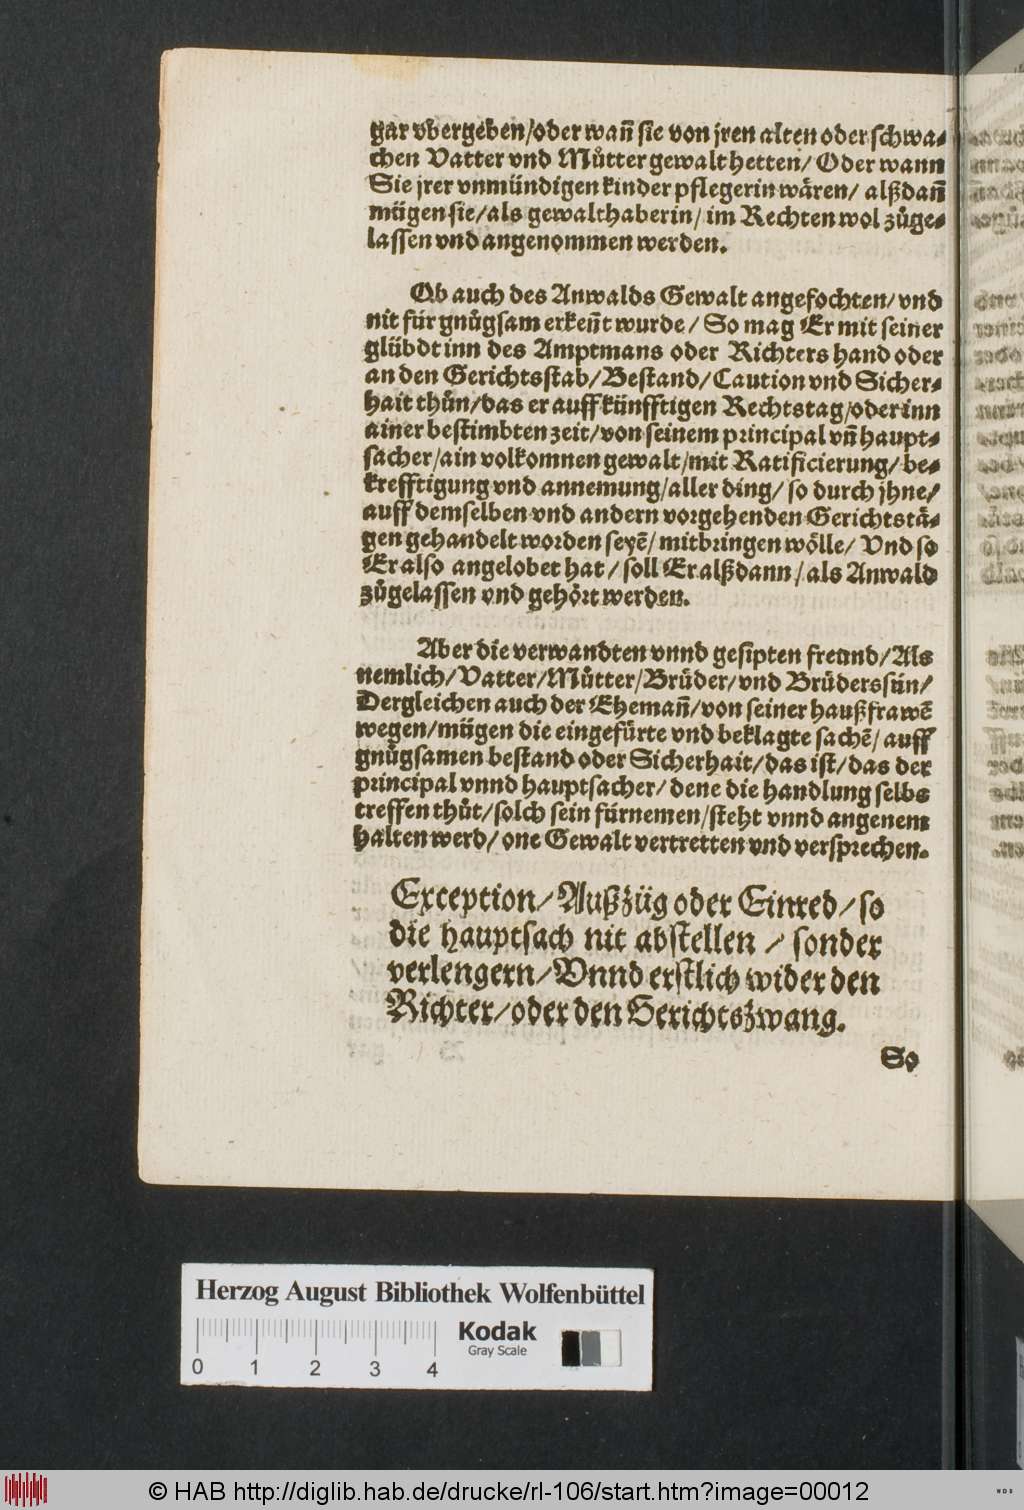 gar vbergeben/oder wañ sie von jren alten oder schwa⸗
chen Vatter vnd Můtter gewalt hetten/ Oder wann
Sie jrer vnmündigen kinder pflegerin wären/ alßdañ
mügen sie/als gewalthaberin/ im Rechten wol zůge⸗
lassen vnd angenommen werden.
Ob auch des Anwalds Gewalt angefochten/ vnd
nit für gnůgsam erkeñt wurde/ So mag Er mit seiner
glübdt inn des Amptmans oder Richters hand oder
an den Gerichtsstab/Bestand/Caution vnd Sicher⸗
hait thůn/das er auff künfftigen Rechtstag/oder inn
ainer bestimbten zeit/von seinem principal vñ haupt⸗
sacher/ain volkomnen gewalt/mit Ratificierung/ be⸗
krefftigung vnd annemung/aller ding/ so durch jhne/
auff demselben vnd andern vorgehenden Gerichtstä⸗
gen gehandelt worden seyẽ/ mitbringen wölle/ Vnd so
Er also angelobet hat/ soll Er alßdann/als Anwald
zůgelassen vnd gehört werden.
Aber die verwandten vnnd gesipten freund/Als
nemlich/Vatter/Můtter/Brüder/vnd Brüderssün/
Dergleichen auch der Ehemañ/von seiner haußfrawẽ
wegen/mügen die eingefürte vnd beklagte sachẽ/ auff
gnůgsamen bestand oder Sicherhait/das ist/das der
principal vnnd hauptsacher/ dene die handlung selbs
treffen thůt/solch sein fürnemen/steht vnnd angenem
halten werd/ one Gewalt vertretten vnd versprechen.
Exception/Außzüg oder Einred/so
die hauptsach nit abstellen / sonder
verlengern/Vnnd erstlich wider den
Richter/oder den Gerichtszwang.
So
Herzog August Bibliothek Wolfenbüttel
Kodak
Gray Scale
0 1 2 3 4
© HAB http://diglib.hab.de/drucke/rl-106/start.htm?image=00012